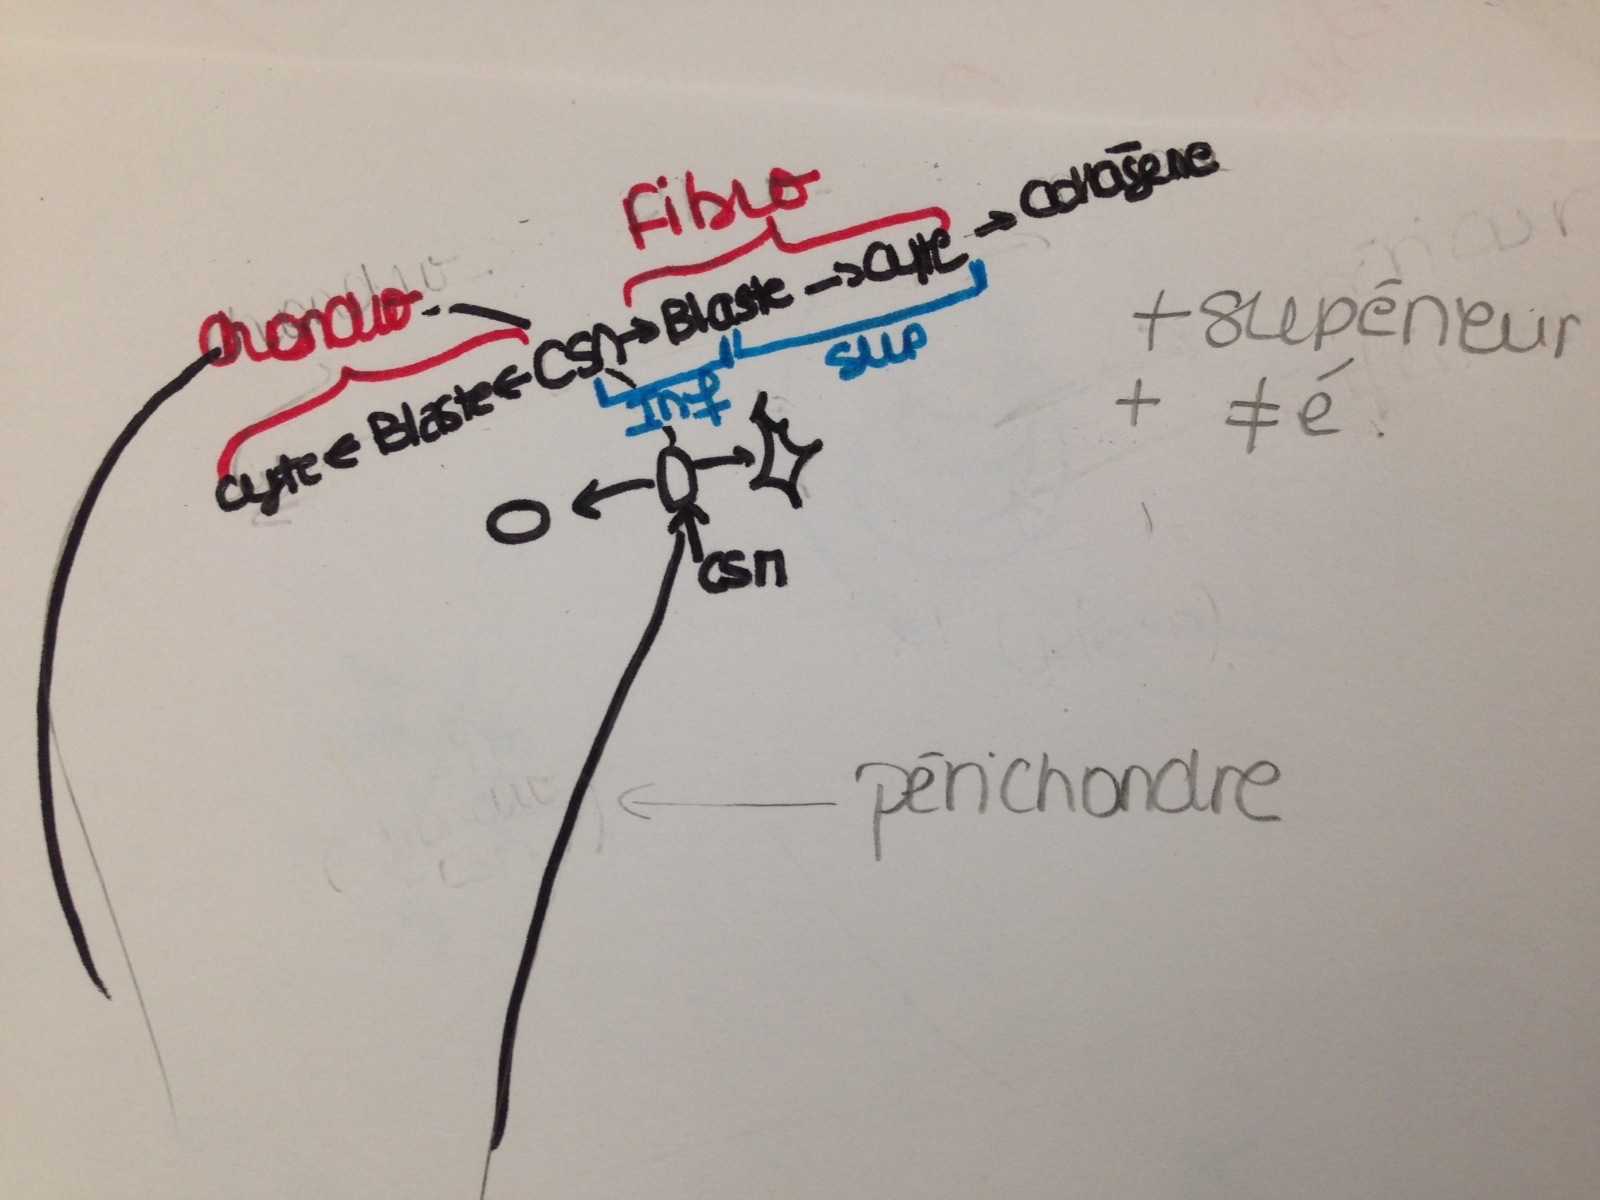 Fibro
collagène
chondro
Cyte ← Blaste ← CSM → Blaste → Cyte →
Inf
sup
+ supérieur
+ ≠é
CSM
périchondre